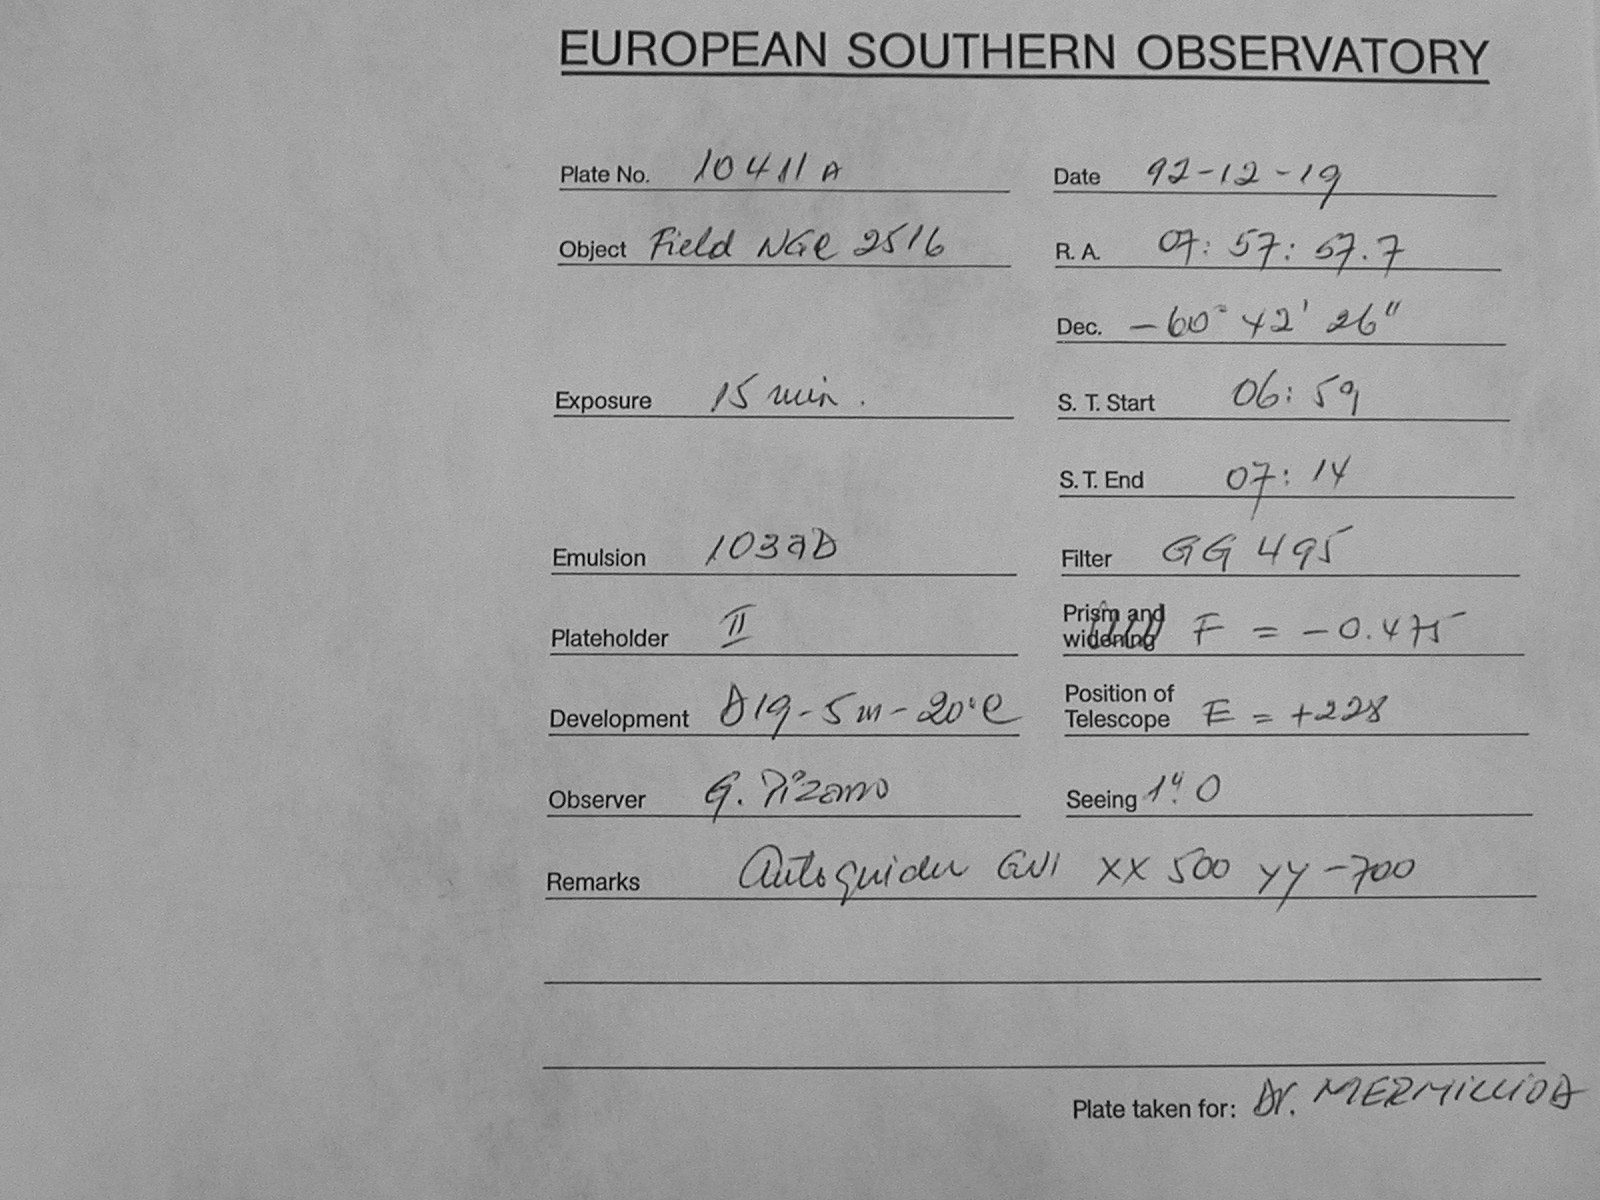 EUROPEAN SOUTHERN OBSERVATORY
Plate No. 10411A
Date 92-12-19
Object Field NGC 2516
R. A. 07: 57: 57.7
Dec. -60° 42' 26"
Exposure 15 min.
S. T. Start 06: 59
S. T. End 07: 14
Emulsion 103aD
Filter GG 495
Plateholder II
Prism and
widening F = -0.475
Development D19-5m-20°C
Position of
Telescope E = +228
Observer G. Pizarro
Seeing 1".0
Remarks Autoguider GNI XX 500 yy -700
Plate taken for: Dr. MERMILLIOD